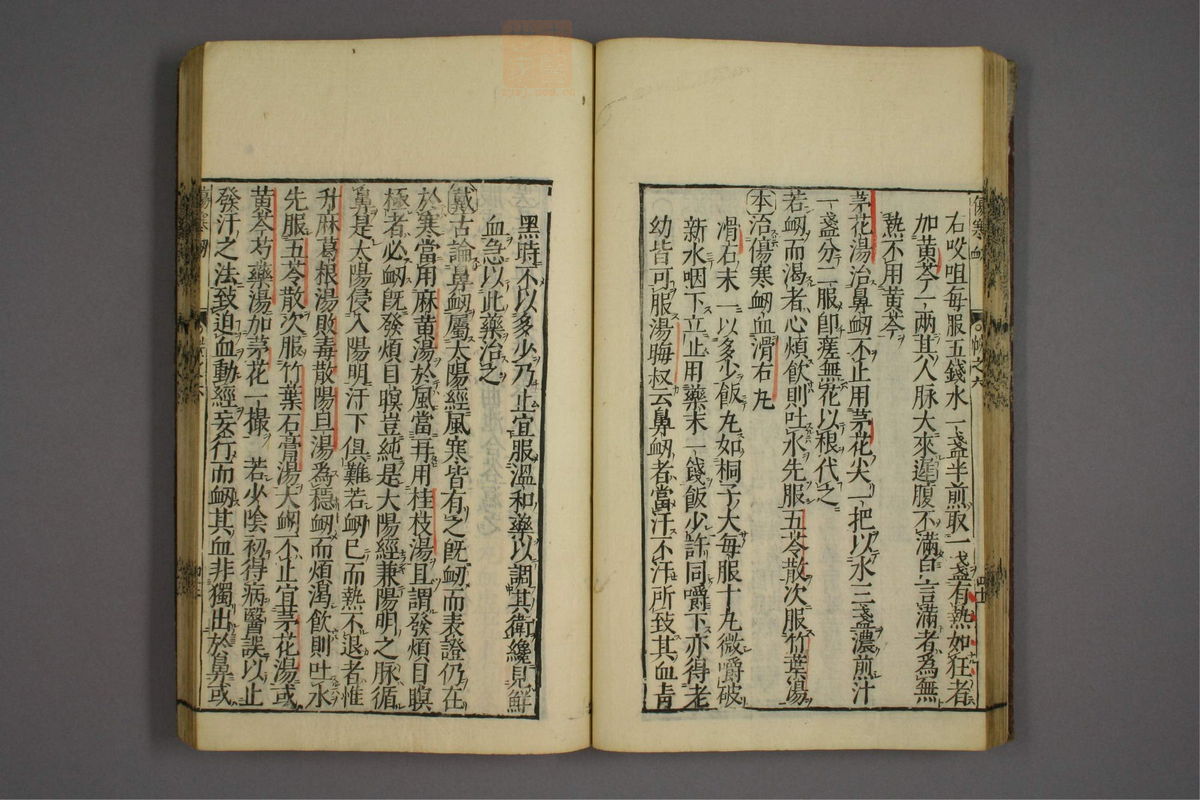 右㕮咀每服五錢水一盞半煎取一盞有熱如狂者
加黃芩二兩其人脉大來遲腹不滿自言滿者爲無
熱不用黃芩
茅花湯治鼻衂不止用茅花尖一把以水三盞濃煎汁
一盞分二服卽瘥無花以根代之
若衂而渴者心煩飮則吐水先服五苓散次服竹葉湯
本治傷寒衂血滑石丸
滑石末不以多少飯丸如桐子大每服十丸微嚼破
新水咽下立止用藥末一錢飯少許同嚼下亦得老
幼皆可服湯晦叔云鼻衂者當汗不汗所致其血靑
黑時不以多少乃止宜服溫和藥以調其衛纔見鮮
血急以此藥治之
戴古論鼻衂屬太陽經風寒皆有之旣衂而表證仍在
於寒當用麻黃湯於風當再用桂枝湯且謂發煩目瞑
極者必衂旣發煩目瞑豈純是大陽經兼陽明之脉循
鼻是太陽侵入陽明汗下俱難若衂已而熱不退者惟
升麻葛根湯敗毒散陽旦湯爲穩衂而煩渴飮則吐水
先服五苓散次服竹葉石膏湯大衂不止宜茅花湯或
黃芩芍藥湯加茅花一撮 若少陰初得病醫誤以正
發汗之法致迫血動經妄行而衂其血非獨出於鼻或